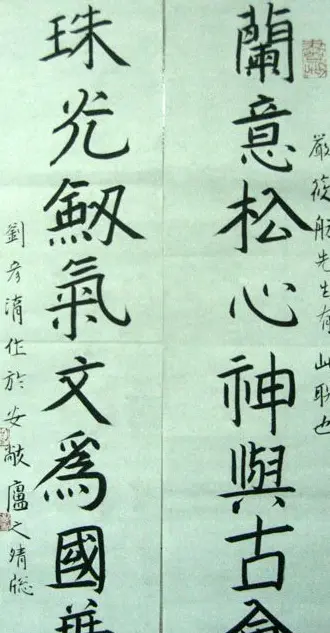 嚴筱舫先生有此聯也
蘭意松心神與古
珠光劔氣文爲國華
劉彥作於安敞廬之晴牕